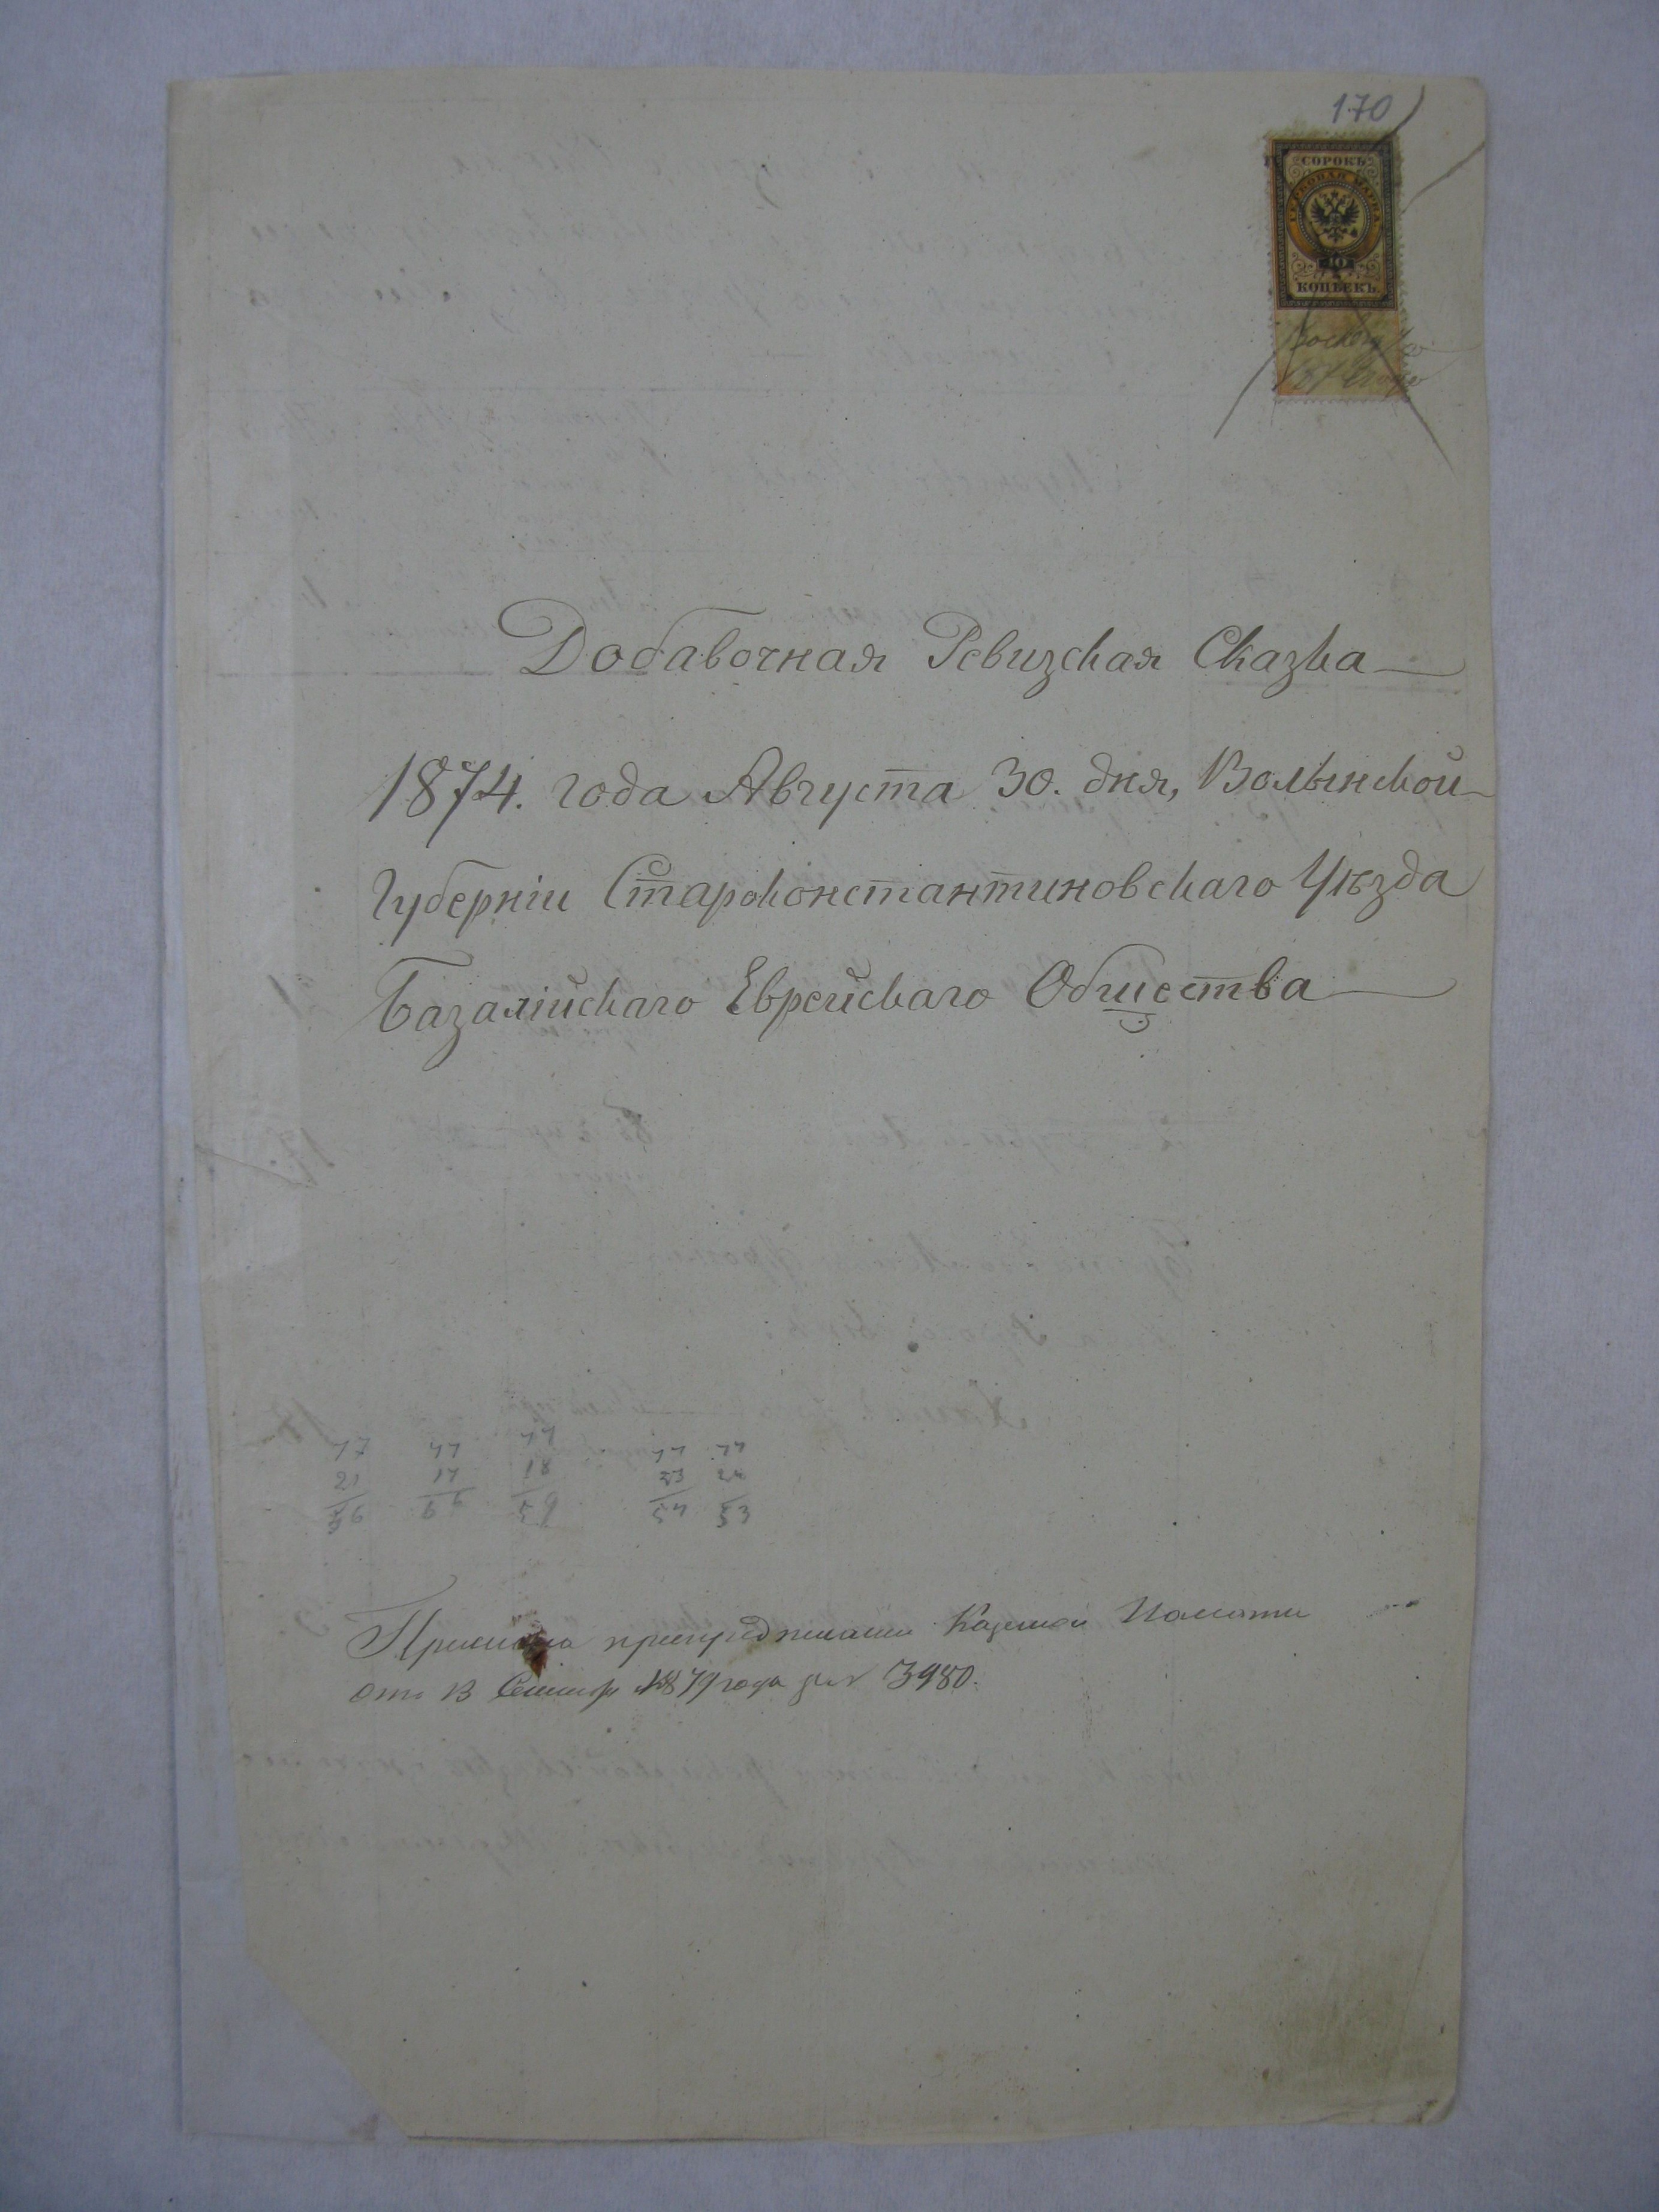 170
СОРОКЪ
ГЕРБОВАЯ МАРКА
40
КОПѢЕКЪ
Добавочная Ревизская Сказка
1874. года Августа 30. дня, Волынской
Губерніи Староконстантиновскаго Уѣзда
Базалійскаго Еврейскаго Общества
77 77 77 77 77
21 17 18 23 24
56 66 59 54 53
Казенной Палаты
от 13 1879 года за № 3980.